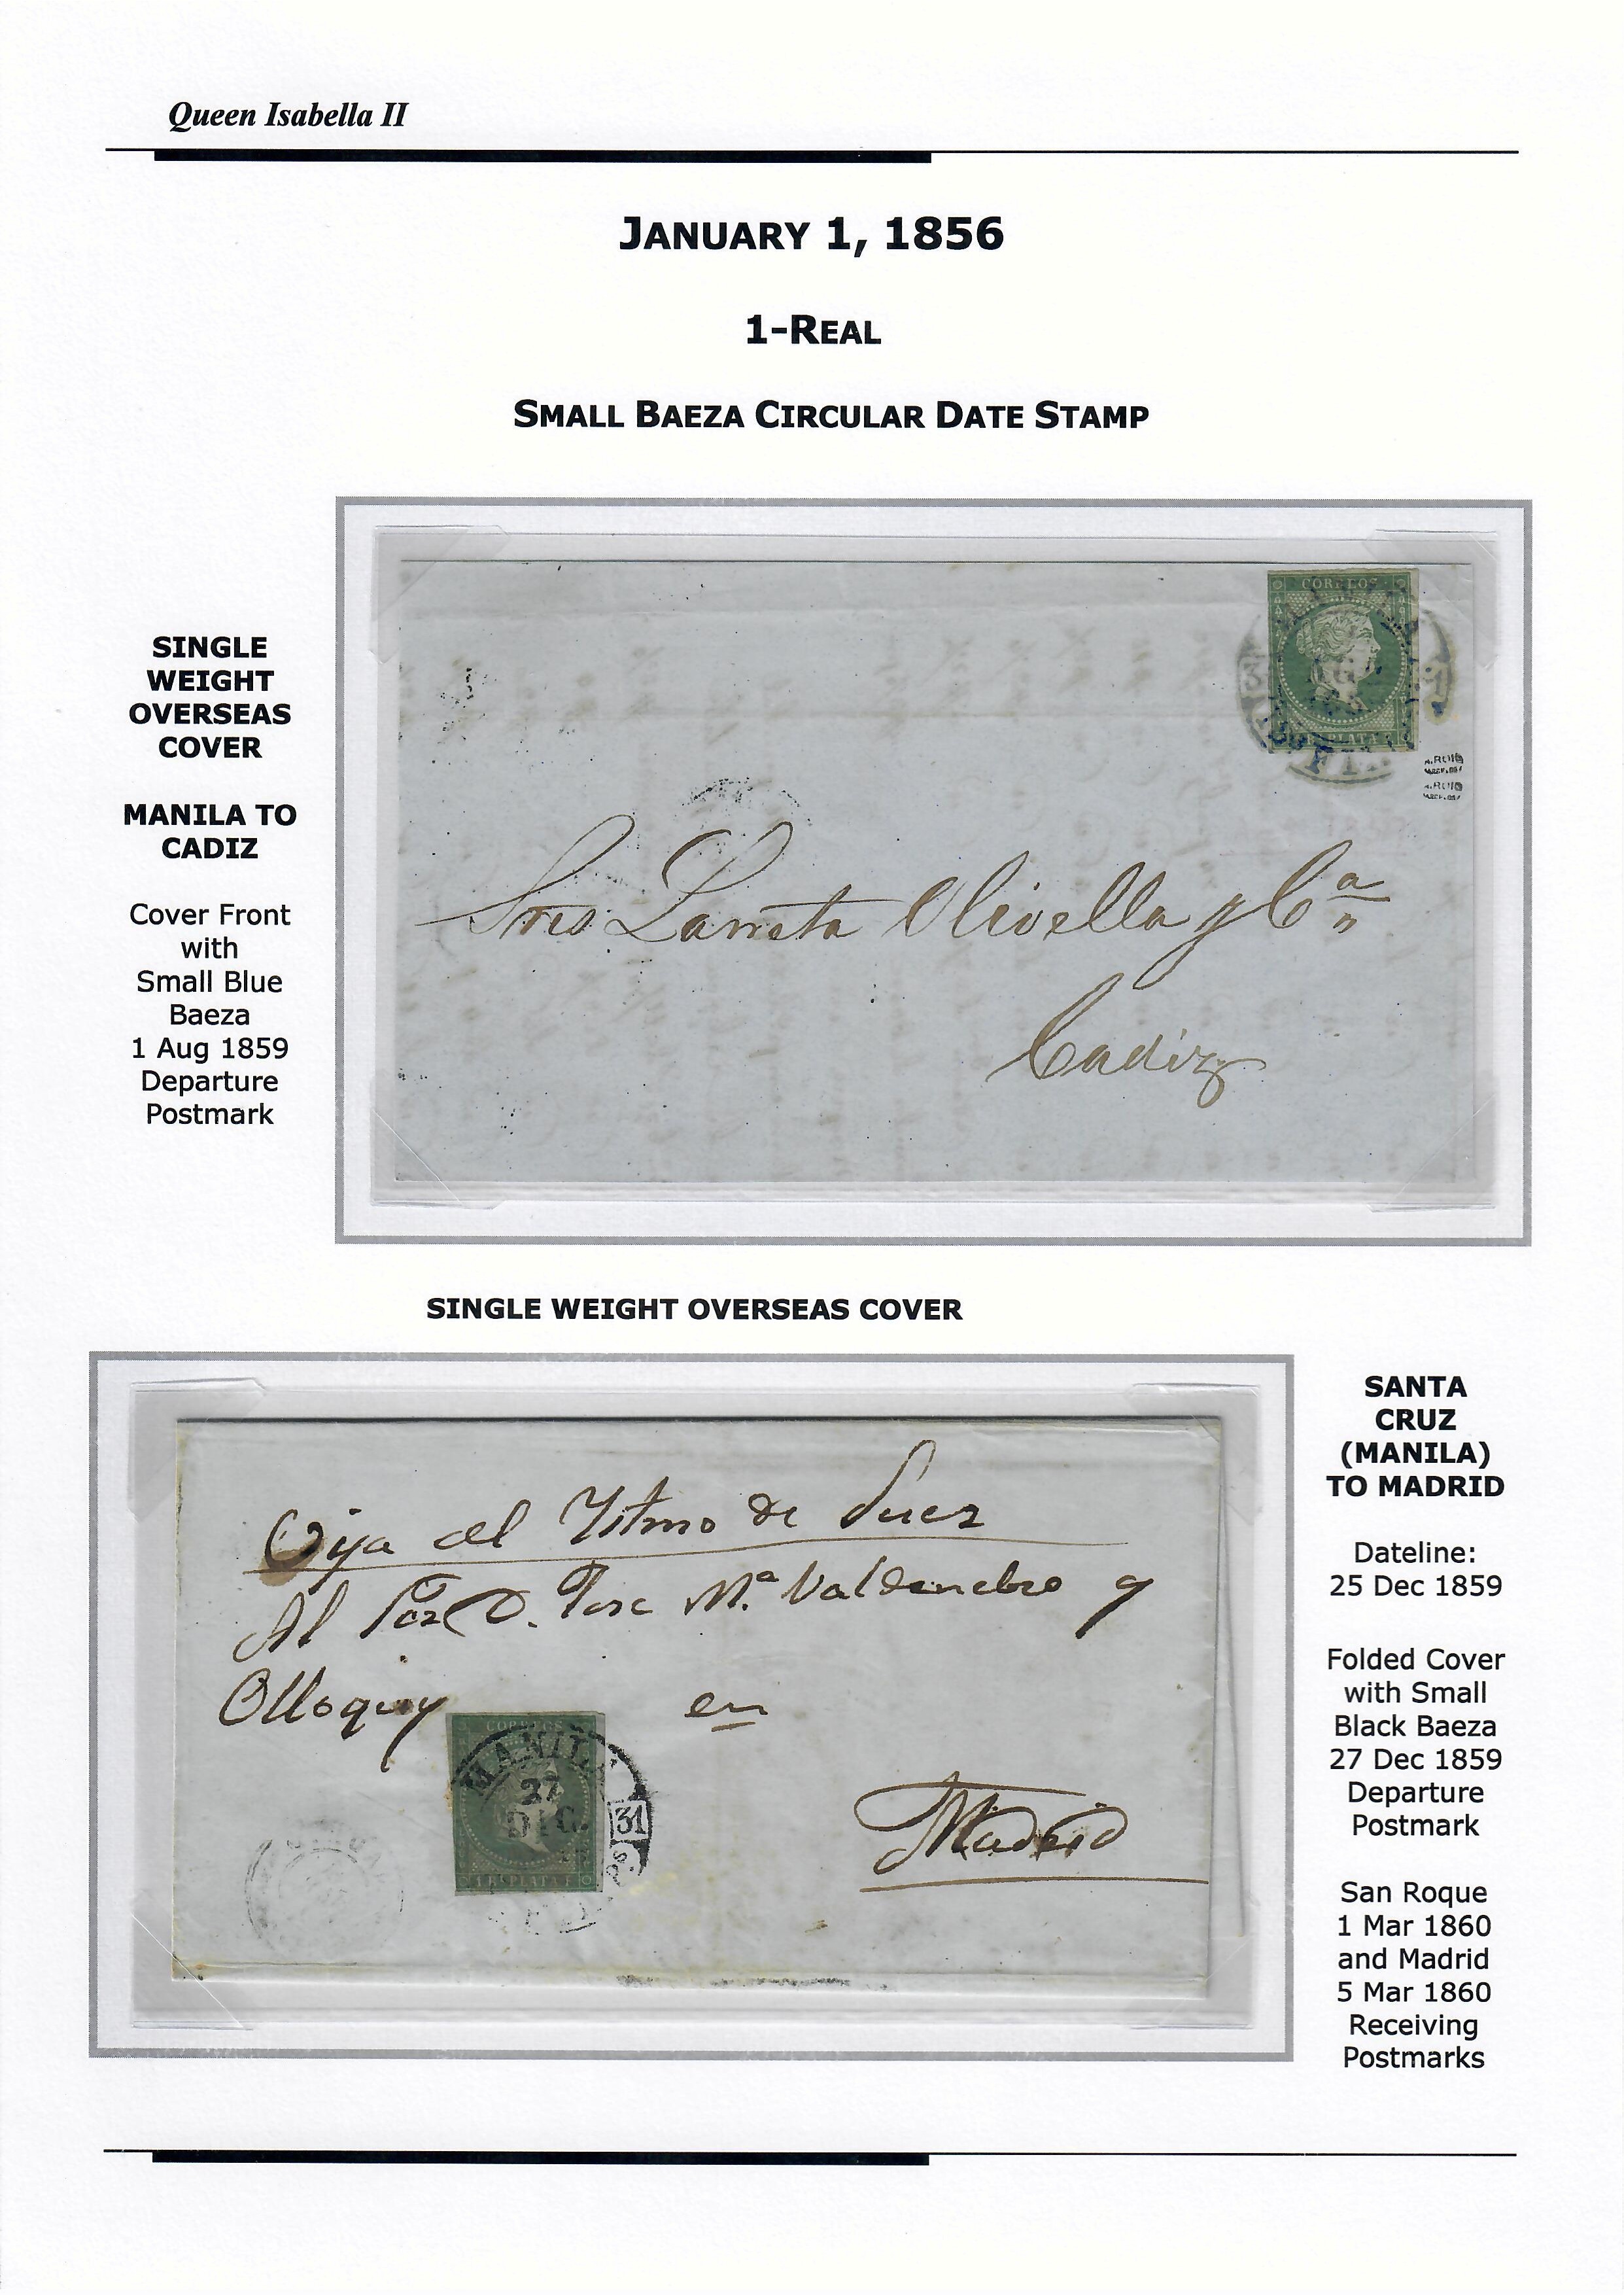 Queen Isabella II
JANUARY 1, 1856
1-REAL
SMALL BAEZA CIRCULAR DATE STAMP
SINGLE
WEIGHT
OVERSEAS
COVER
MANILA TO
CADIZ
Cover Front
with
Small Blue
Baeza
1 Aug 1859
Departure
Postmark
CORREOS
PLATA F
A.ROIG
A.ROIG
Sres Larreta Olivella y Ca
Cadiz
SINGLE WEIGHT OVERSEAS COVER
Via del Ystmo de Suez
Al Sor D. Jose Ma. Valdenebro y
Olloqui en
CORREOS
MANILA
27
DIC.
31
1 Rl PLATA F
Madrid
SANTA
CRUZ
(MANILA)
TO MADRID
Dateline:
25 Dec 1859
Folded Cover
with Small
Black Baeza
27 Dec 1859
Departure
Postmark
San Roque
1 Mar 1860
and Madrid
5 Mar 1860
Receiving
Postmarks